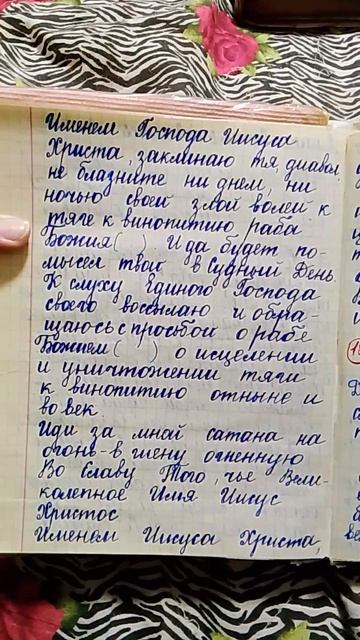 Именем Господа Иисуса
Христа, заклинаю тя, диавол,
не блазните ни днем, ни
ночью своей злой волей к
тяге к винопитию раба
Божия ( ) И да будет по-
мысел твой в Судный День.
К слуху Единого Господа
своего воссылаю и обра-
щаюсь с просьбой о рабе
Божием ( ) о исцелении
и уничтожении тяги
к винопитию отныне и
во век.
Иди за мной сатана на
огонь - в гиену огненную
Во Славу Того, чье Вели-
колепное Имя Иисус
Христос
Именем Иисуса Христа,